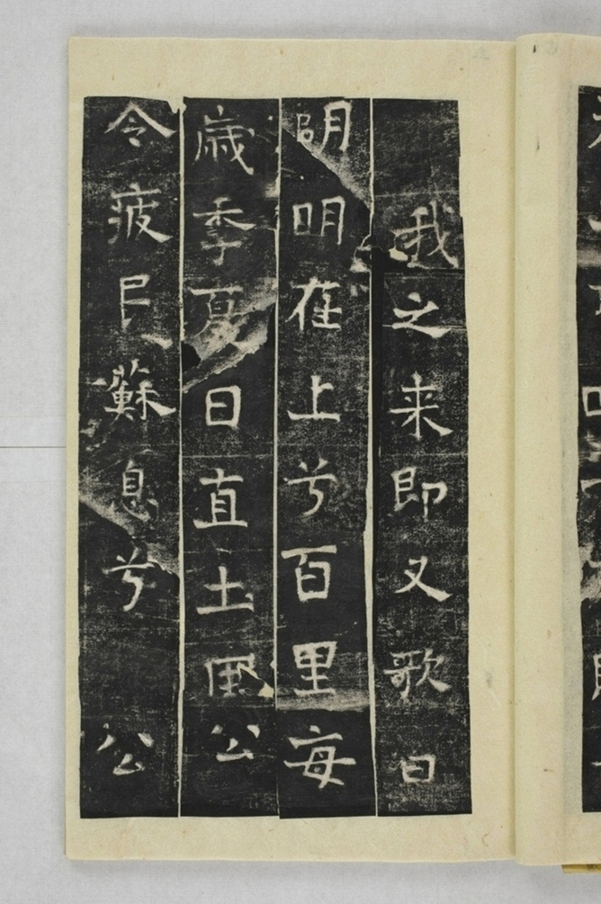 我之来即又歌曰
明明在上兮百里每
歲季夏日直土風公
令疲民蘇息兮公